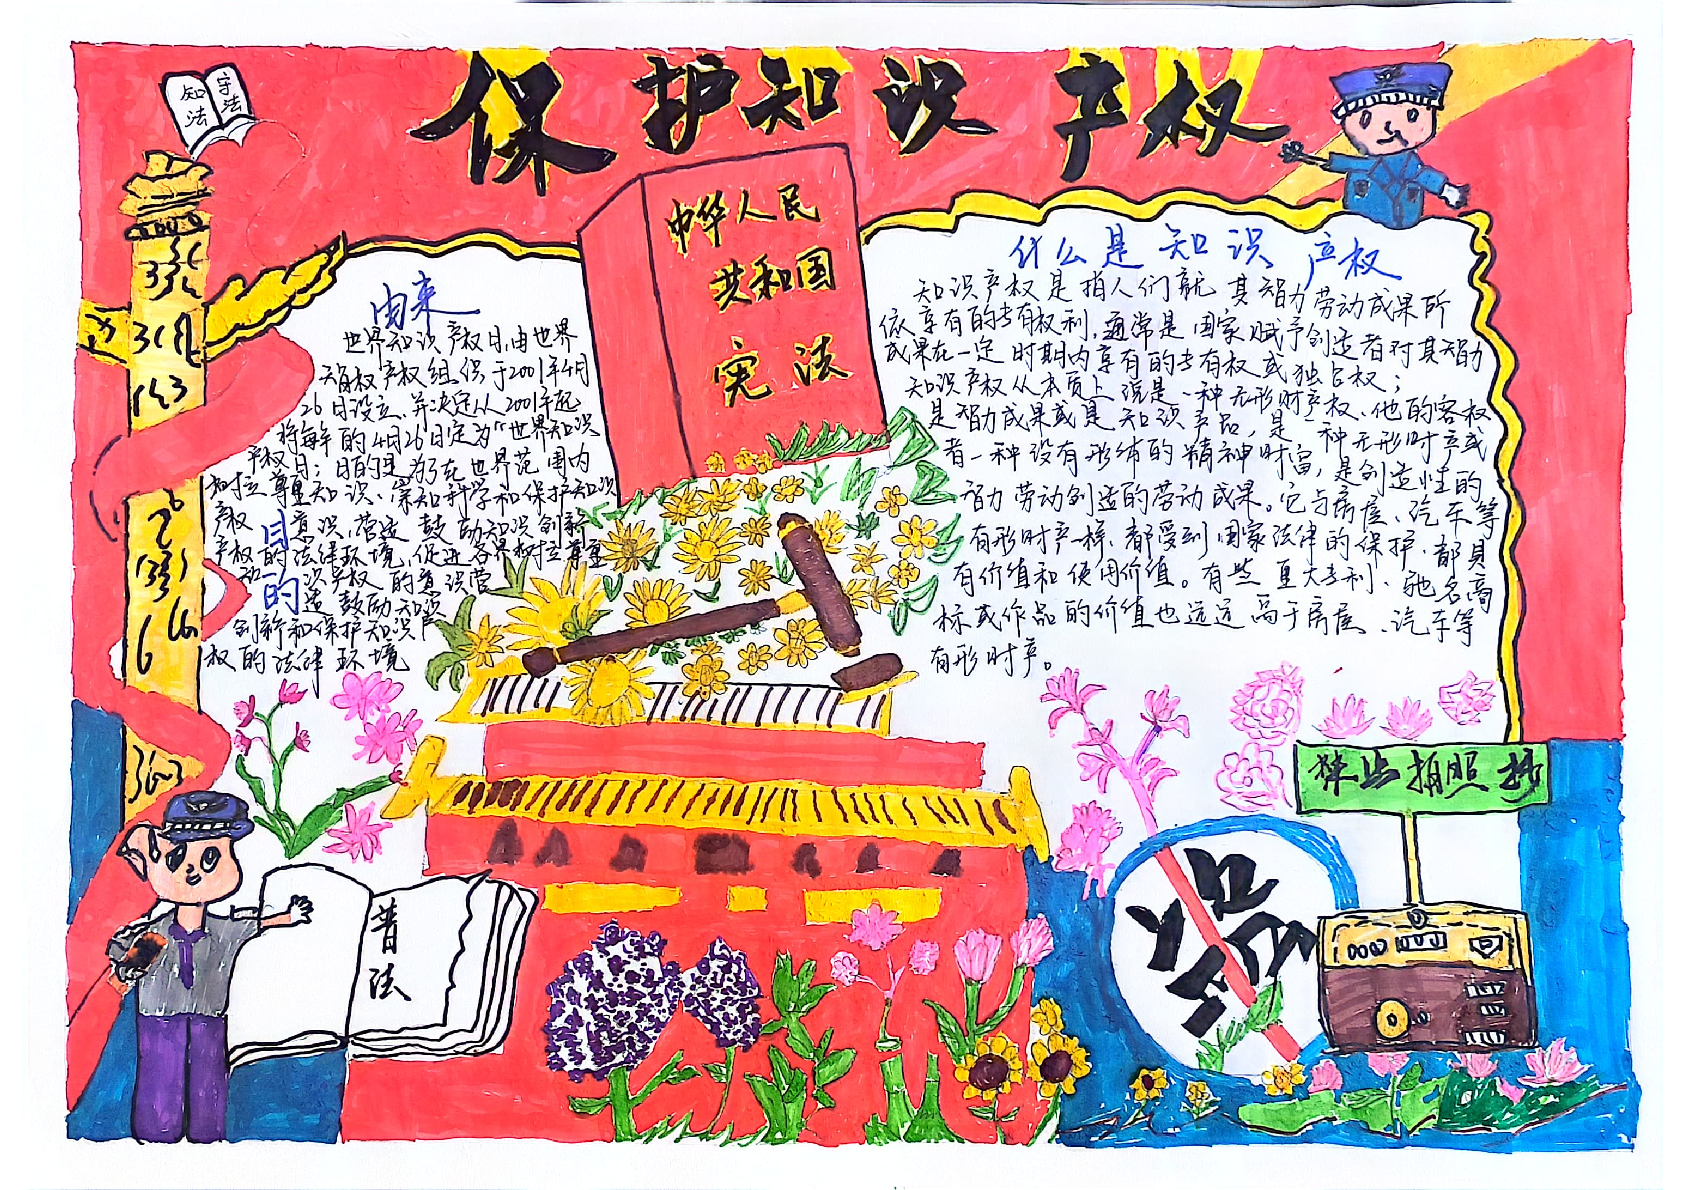 保护知识产权
知法
守法
中华人民
共和国
宪法
由来
世界知识产权日,由世界
知权产权组织于2001年4月
26日设立,并决定从2001年起
将每年的4月26日定为“世界知识
产权日;目的是为了在世界范围内
树立尊重知识、崇知科学和保护知识
产权 意识,营造鼓励知识创新
产权的法律环境,促进各界树立尊重
知识产权的意识营
造鼓励知识
目的
创新和保护知识产
权的法律环境
什么是知识产权
知识产权是指人们就其智力劳动成果所
依享有的专有权利,通常是国家赋予创造者对其智力
成果在一定时期内享有的专有权或独占权;
知识产权从本质上说是一种无形财产权、他的客权
是智力成果或是知识产品,是一种无形财产或
者一种没有形体的精神财富,是创造性的
智力劳动创造的劳动成果。它与房屋、汽车等
有形财产一样,都受到国家法律的保护,都具
有价值和使用价值。有些重大专利、驰名商
标或作品的价值也远远高于房屋、汽车等
有形财产。
禁止拍照抄
普法